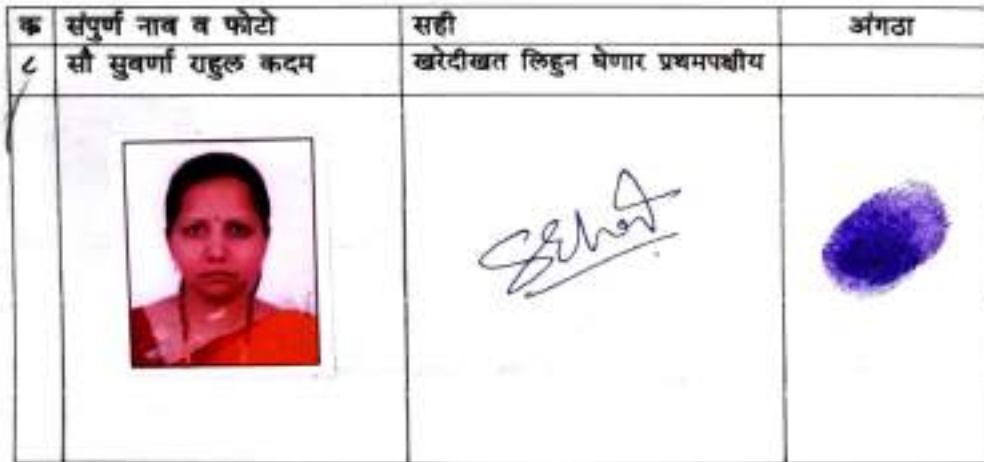 क्र संपुर्ण नाव व फोटो सही अंगठा
८ सौ सुवर्णा राहुल कदम खरेदीखत लिहुन घेणार प्रथमपक्षीय